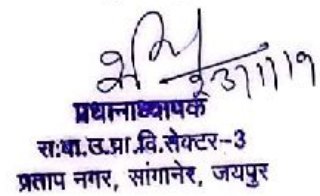 23/1/19
प्रधानाध्यापक
रा.बा.उ.प्रा.वि.सेक्टर-3
प्रताप नगर, सांगानेर, जयपुर